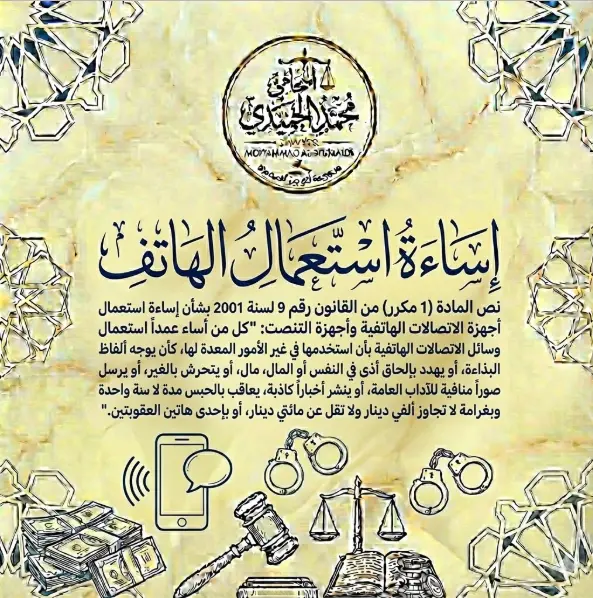 المحامي
محمد الحميدي
إساءة استعمال الهاتف
نص المادة (1 مكرر) من القانون رقم 9 لسنة 2001 بشأن إساءة استعمال
أجهزة الاتصالات الهاتفية وأجهزة التنصت: "كل من أساء عمداً استعمال
وسائل الاتصالات الهاتفية بأن استخدمها في غير الأمور المعدة لها، كأن يوجه ألفاظ
البذاءة، أو يهدد بإلحاق أذى في النفس أو المال، مال، أو يتحرش بالغير، أو يرسل
صوراً منافية للآداب العامة، أو ينشر أخباراً كاذبة، يعاقب بالحبس مدة لا سنة واحدة
وبغرامة لا تجاوز ألفي دينار ولا تقل عن مائتي دينار، أو بإحدى هاتين العقوبتين."